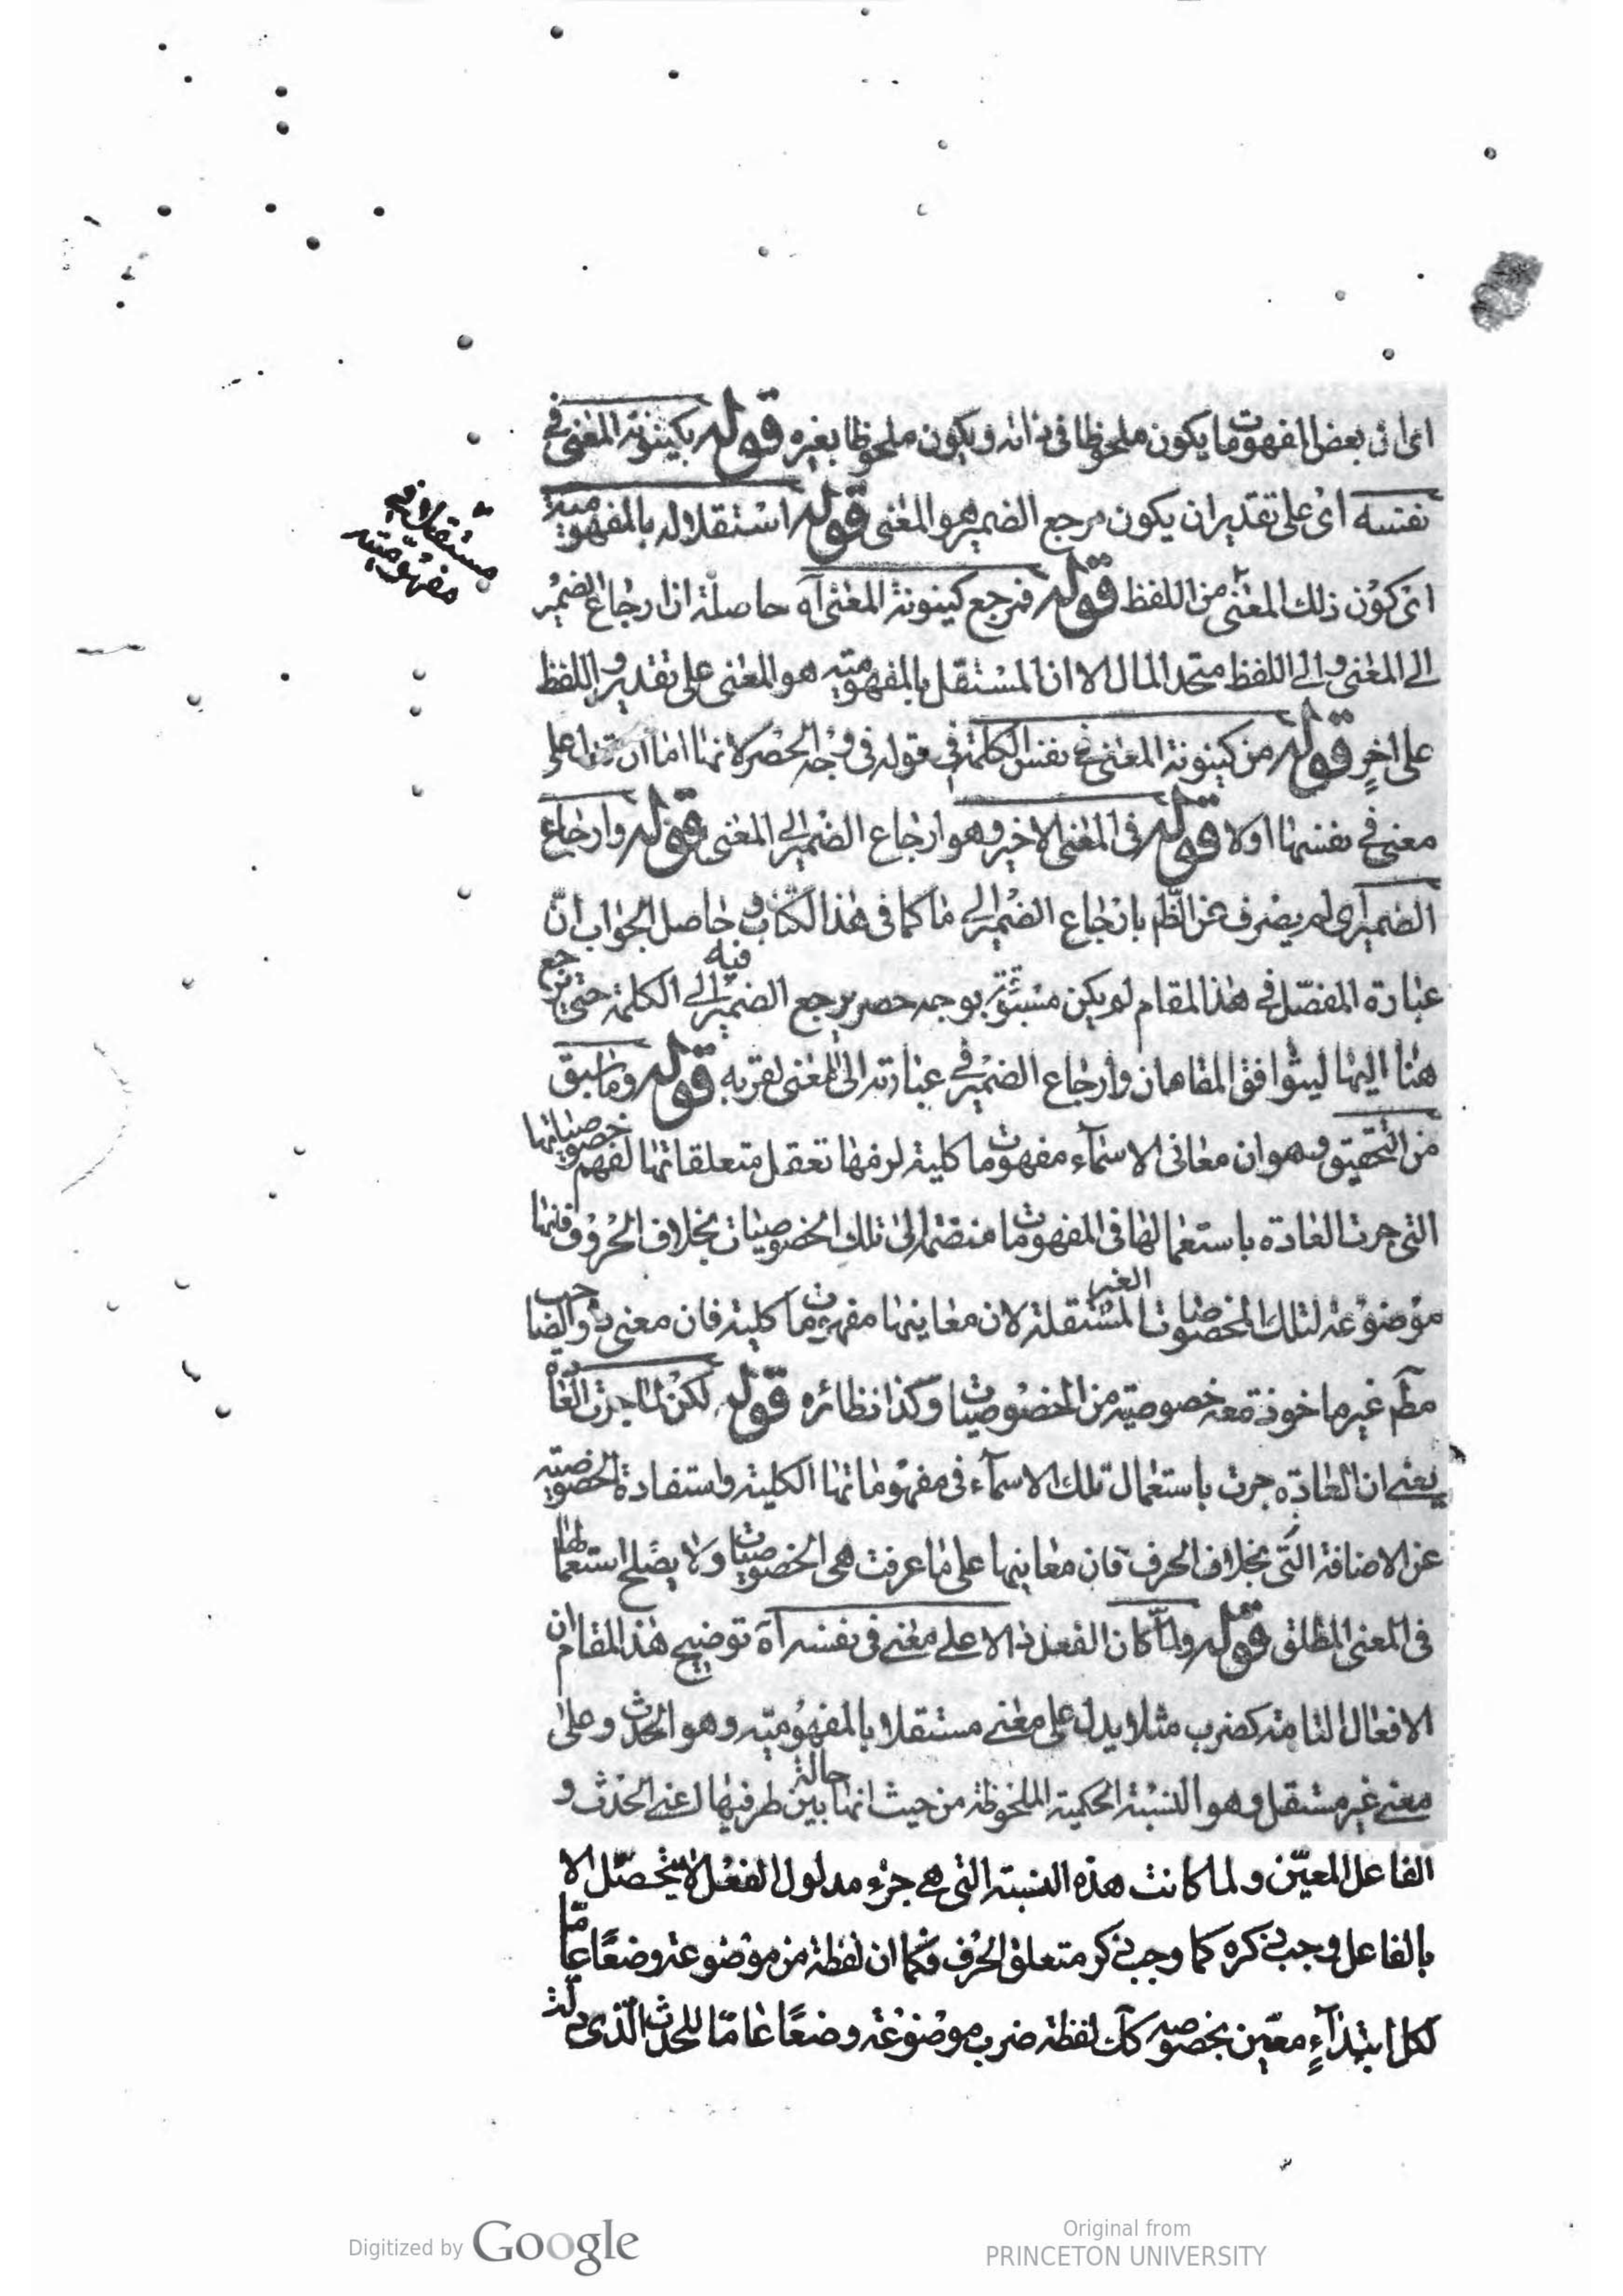 اى ان بعض المفهومات ما يكون ملحوظا فى ذاته ويكون ملحوظا بغيره قوله بكينونة المعنى فى
نفسه اى على تقدير ان يكون مرجع الضمير هو المعنى قوله استقلاله بالمفهومية
مستقلا فى
مفهوميته
اى كون ذلك المعنى من اللفظ قوله فمرجع كينونة المعنى آه حاصله ان ارجاع الضمير
الى المعنى والى اللفظ متحد المال الا ان المستقل بالمفهومية هو المعنى على تقدير واللفظ
على اخر قوله من كينونة المعنى فى نفس الكلمة فى قوله فى وجه الحصر لانها اما ان تدل على
معنى فى نفسها اولا قوله فى المعنى الاخير وهو ارجاع الضمير الى المعنى قوله وارجاع
الضمير اى لم يصرف عن الظم بارجاع الضمير الى ما كما فى هذا الكتاب وحاصل الجواب انّ
عبارة المفصّل فى هذا المقام لم يكن مسبوقة بوجه حصر يرجع الضمير فيه الى الكلمة حتى يرجع
هنا اليها ليتوافق المقامان وارجاع الضمير فى عبارته الى المعنى لقربه قوله وما سبق
من التحقيق وهو ان معانى الاسمآء مفهومات كلية لزمها تعقل متعلقاتها لفهم خصوصياتها
التى جرت العادة باستعمالها فى المفهومات منضما الى تلك الخصوصيات بخلاف الحروف فانها
موضوعة لتلك الخصوصيات الغير المستقلة لان معاينها مفهومات كلية فان معنى ذو الصاحب
مطم غير ماخوذة معه خصوصية من الخصوصيات وكذا نظائره قوله لكن لما جرت العادة
يعنى ان العادة جرت باستعمال تلك الاسمآء فى مفهوماتها الكلية واستفادة الخصوصية
عن الاضافة التى بخلاف الحرف فان معاينها على ما عرفت هى الخصوصيات ولا يصلح استعمالها
فى المعنى المطلق قوله ولمّا كان الفعل دالا على معنى فى نفسه آه توضيح هذا المقام ان
الافعال التامة كضرب مثلا يدل على معنى مستقلا بالمفهومية وهو الحدث وعلى
معنى غير مستقل وهو النسبة الحكمية الملحوظة من حيث انها حالة بين طرفيها اعنى الحدث و
الفاعل المعيّن ولما كانت هذه النسبة التى هى جزء مدلول الفعل لا يتحصّل الا
بالفاعل وجب ذكره كما وجب ذكر متعلق الحرف فكما ان لفظة من موضوعة وضعًا عامّا
لكل ابتدآءٍ معيّن بخصوصه كك لفظة ضرب موضوعة وضعًا عامّا للحدث الّذى دلّت
Digitized by Google
Original from
PRINCETON UNIVERSITY